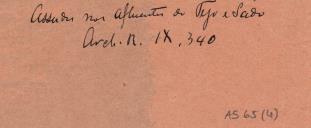 Assudes nos afluentes do Tejo e Sado
Arch. R. IX, 340
AS 65 (4)